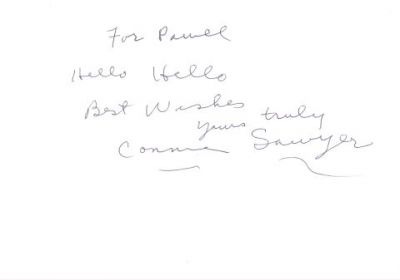 For Pawel
Hello Hello
Best Wishes
yours truly
Connie Sawyer